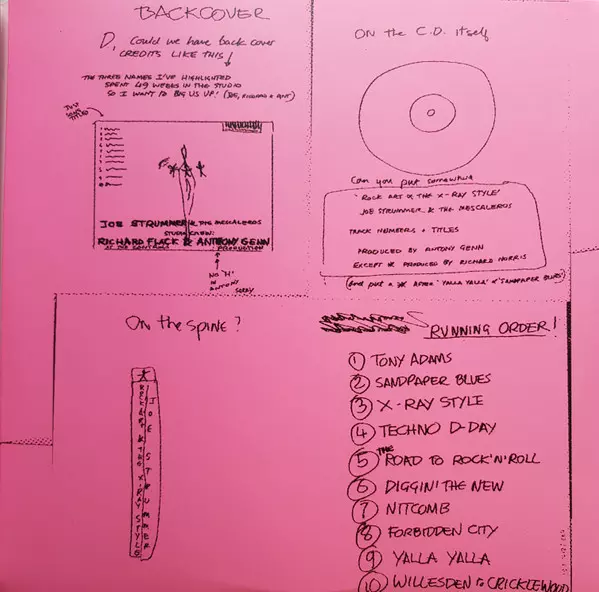 BACKCOVER
D, Could we have back cover
CREDITS LIKE THIS!
THE THREE NAMES I'VE HIGHLIGHTED
SPENT 49 WEEKS IN THE STUDIO
SO I WANT TO BIG US UP! (JOE, RICHARD & ANT)
JOE STRUMMER & THE MESCALEROS
STUDIO CREW:
RICHARD FLACK & ANTONY GENN
AT THE CONTROLS
PRODUCTION
NO 'H'
IN
ANTONY
SORRY
ON the C.D. itself
Can you put somewhere
'ROCK ART & THE X-RAY STYLE'
JOE STRUMMER & THE MESCALEROS
TRACK NUMBERS + TITLES
PRODUCED BY ANTONY GENN
EXCEPT * PRODUCED BY RICHARD NORRIS
(And put a * AFTER 'YALLA YALLA' & 'SANDPAPER BLUES')
On the spine?
ROCK ART & THE X-RAY STYLE
JOE STRUMMER
RUNNING ORDER!
1 TONY ADAMS
2 SANDPAPER BLUES
3 X-RAY STYLE
4 TECHNO D-DAY
5 THE ROAD TO ROCK'N'ROLL
6 DIGGIN' THE NEW
7 NITCOMB
8 FORBIDDEN CITY
9 YALLA YALLA
10 WILLESDEN to CRICKLEWOOD